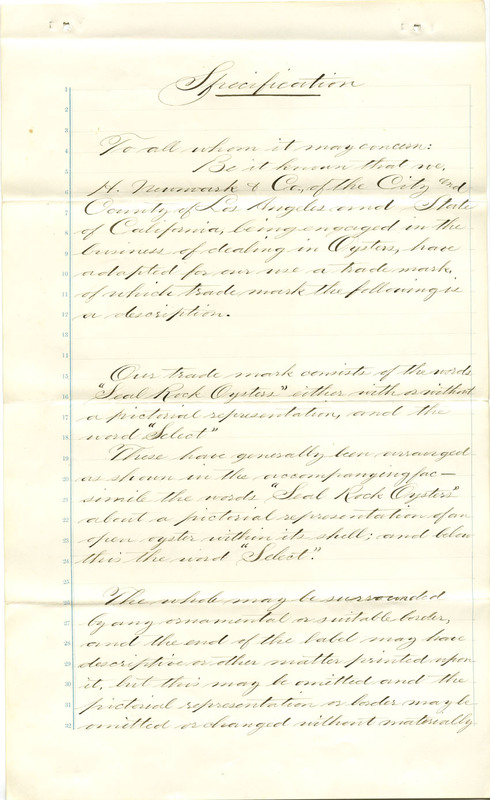 Specification
To all whom it may concern:
Be it known that we,
H. Newmark & Co., of the City and
County of Los Angeles and State
of California, being engaged in the
business of dealing in Oysters, have
adopted for our use a trade mark,
of which trade mark the following is
a description.
Our trade mark consists of the words
"Seal Rock Oysters" either with or without
a pictorial representation, and the
word "Select"
These have generally been arranged
as shown in the accompanying fac-
simile the words "Seal Rock Oysters"
about a pictorial representation of an
open oyster within its shell; and below
this the word "Select".
The whole may be surrounded
by any ornamental or suitable border,
and the end of the label may have
descriptive or other matter printed upon
it, but this may be omitted and the
pictorial representation or border may be
omitted or changed without materially
1
2
3
4
5
6
7
8
9
10
11
12
13
14
15
16
17
18
19
20
21
22
23
24
25
26
27
28
29
30
31
32